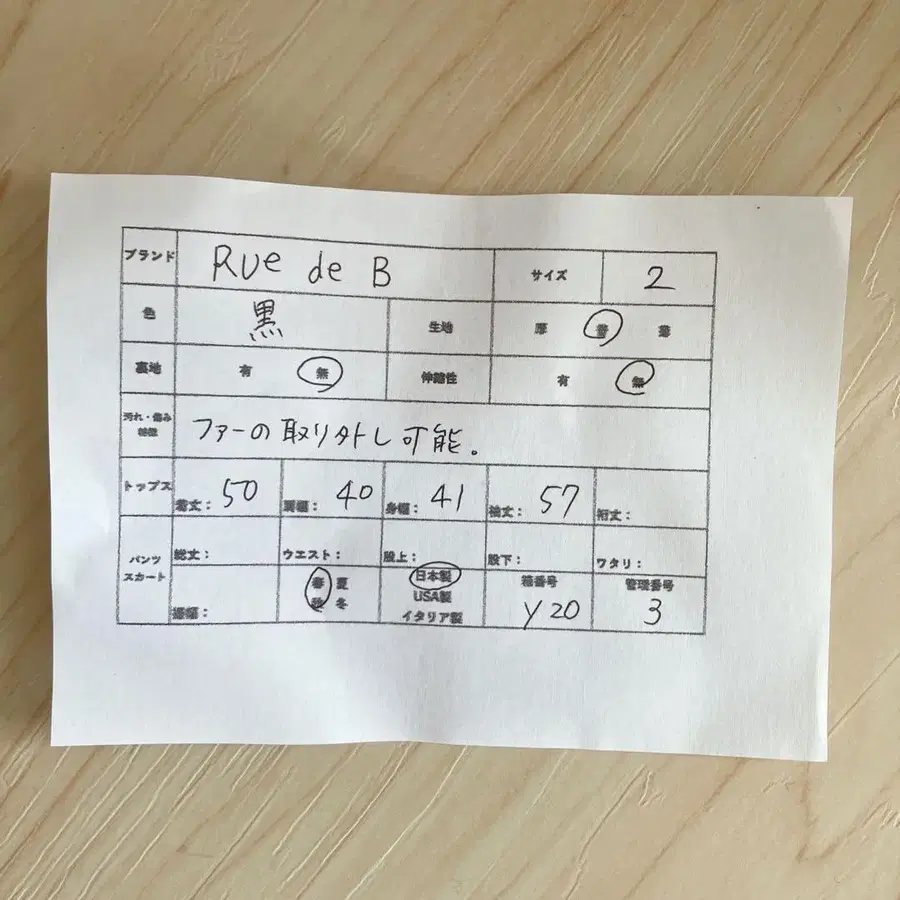 ブランド Rue de B サイズ 2
色 黒 生地 厚 普 薄
裏地 有 無 伸縮性 有 無
汚れ・傷み
特徴
ファーの取り外し可能。
トップス 着丈: 50 肩幅: 40 身幅: 41 袖丈: 57 裄丈:
パンツ
スカート
総丈: ウエスト: 股上: 股下: ワタリ:
裾幅:
春 夏
秋 冬
日本製
USA製
イタリア製
箱番号
y 20
管理番号
3